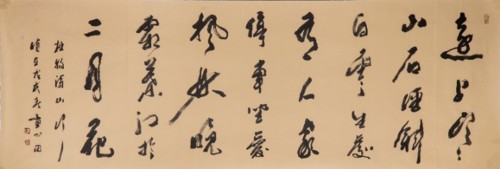 遠上寒
山石徑斜
白雲生處
有人家
停車坐愛
楓林晚
霜葉紅於
二月花
杜牧詩山行
戊戌